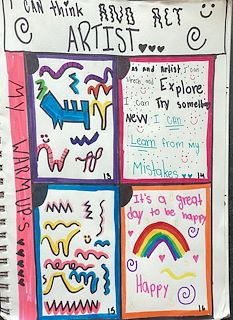 I CAN think AND ACT
ARTIST
MY WARM UP'S
13
as and Artist I can,
Explore
I can Try something
NEW I can
Learn from my
Mistakes..
14
15
It's a great
day to be happy
Happy
16